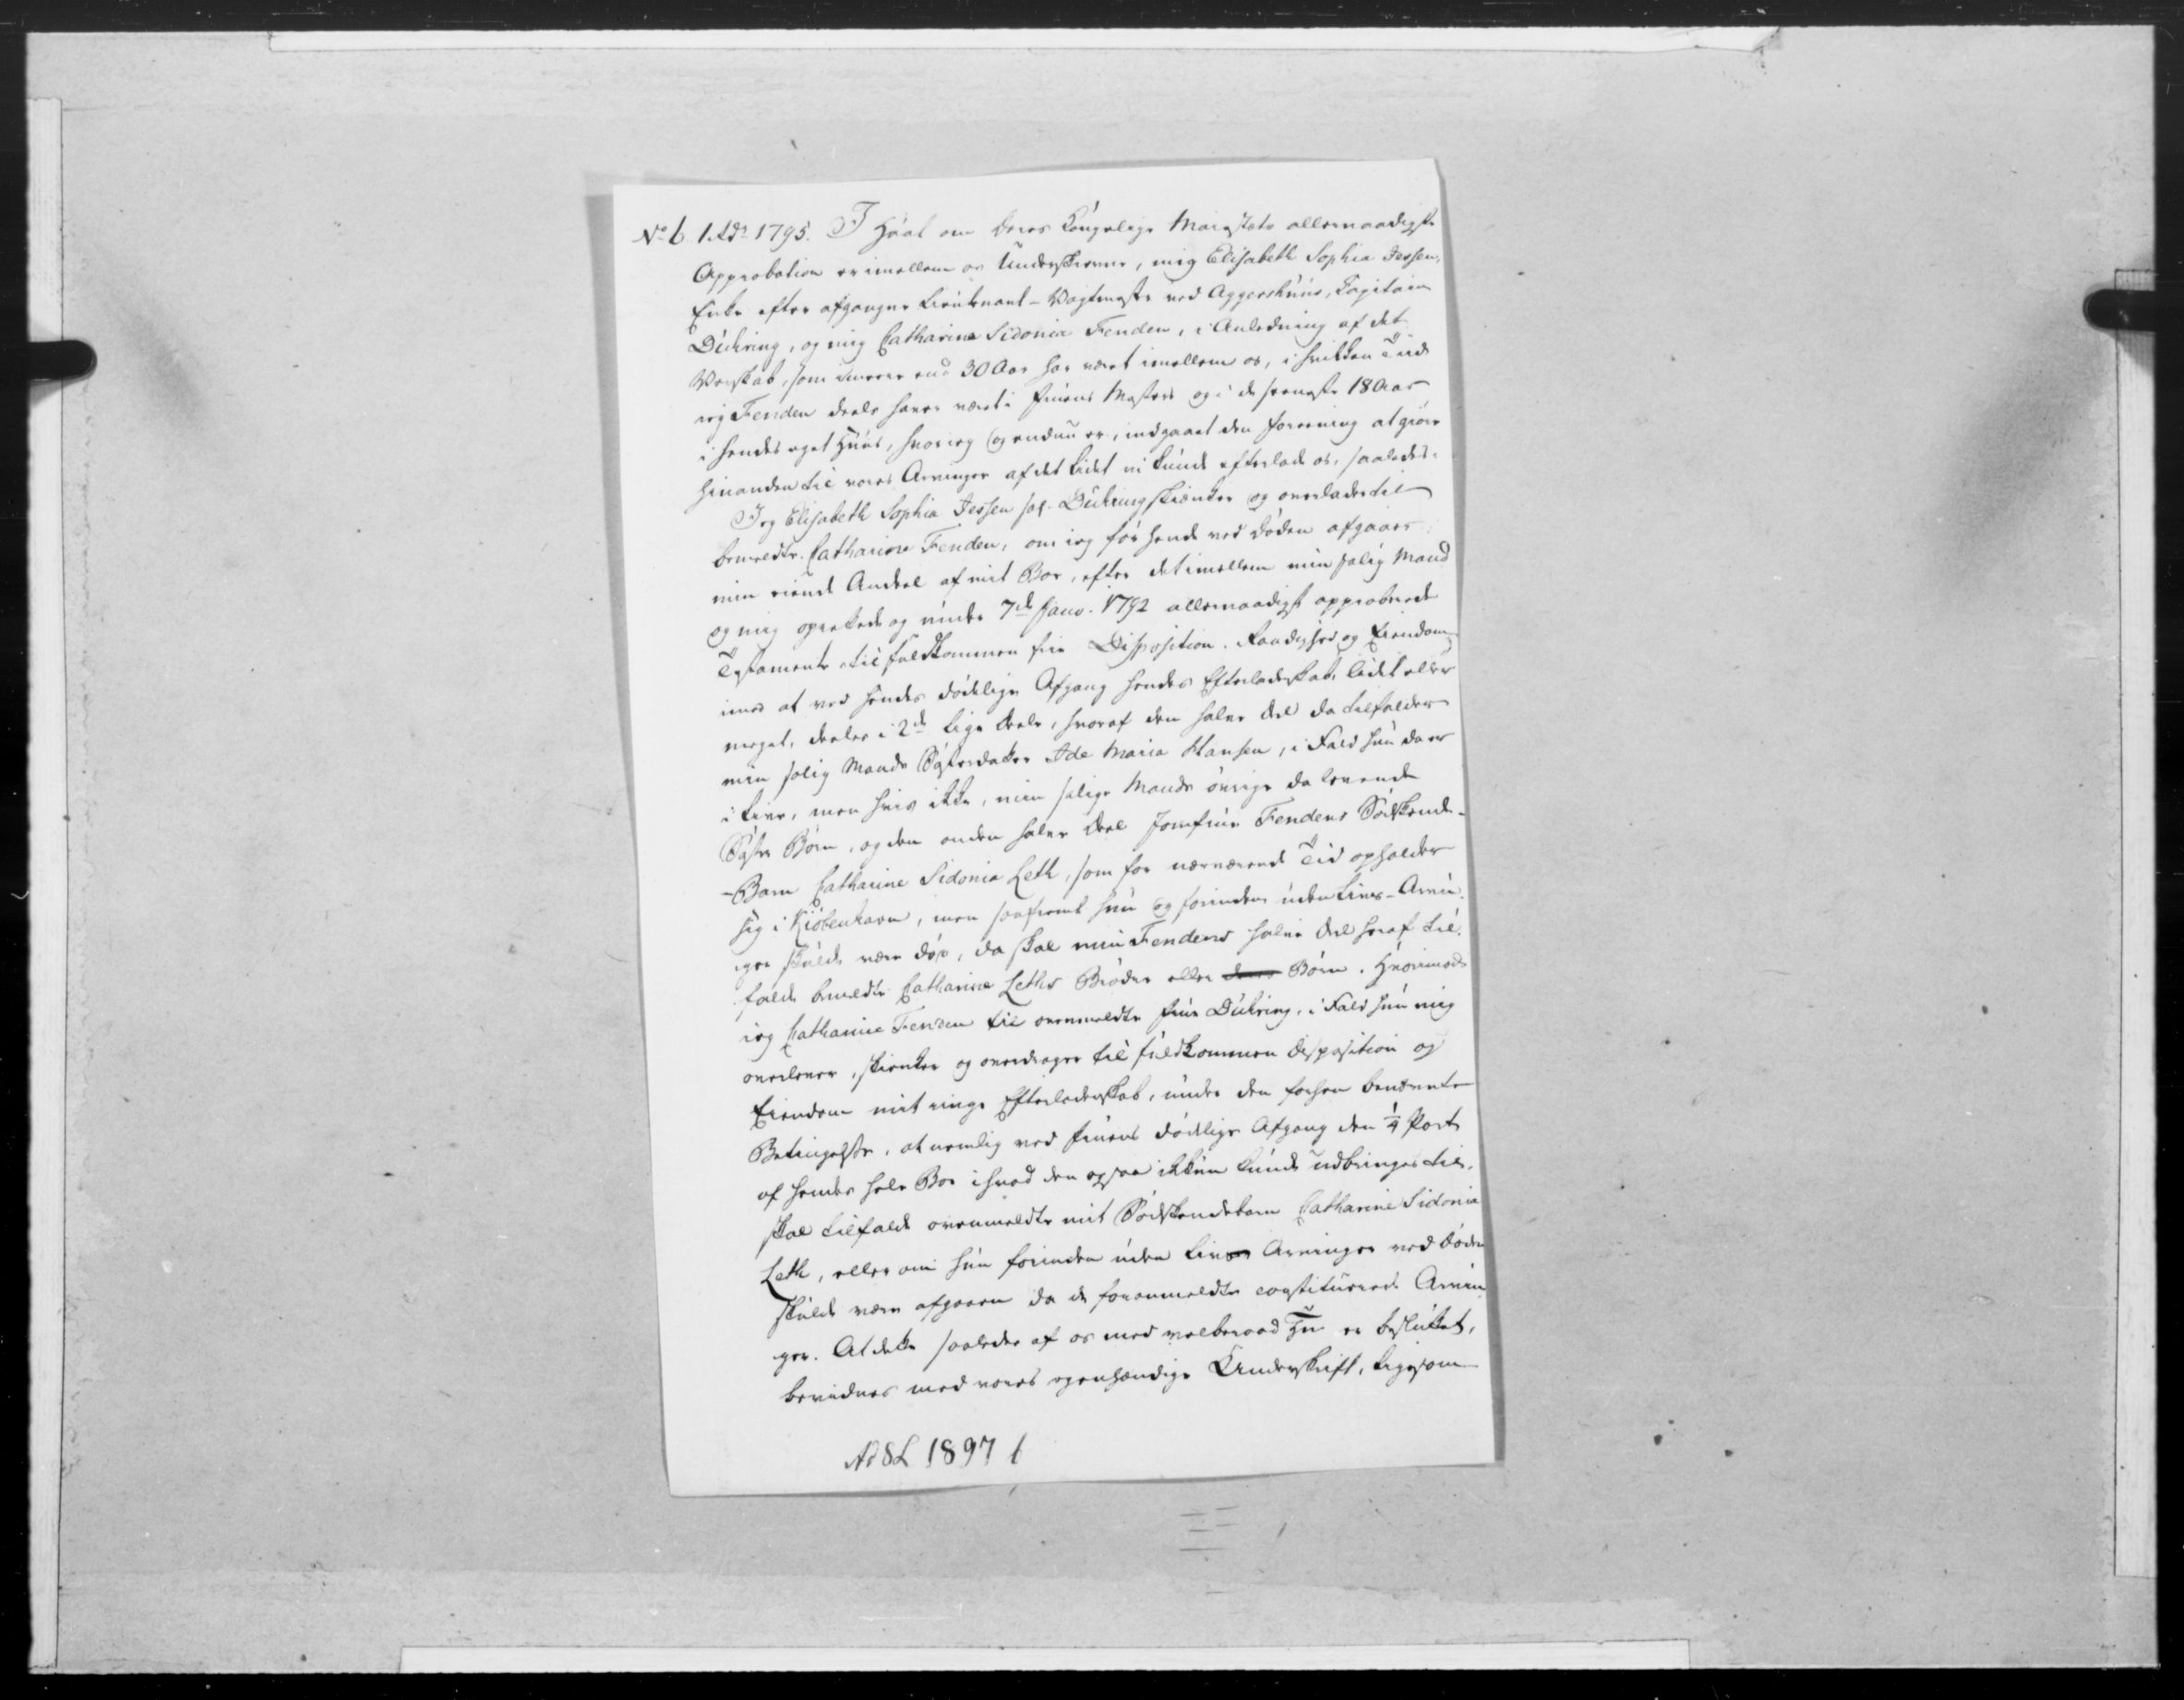 No 6 1. Adr 1795. I Haab om Deres Kongelige Maiestæts allernaadigste
Approbation er imellem os Underskrevne, mig Elisabeth Sophia Jessen,
Enke efter afgangne Lieutenant-Vagtmester ved Aggershuus, Capitain
Dühring, og mig Catharina Sidonia Fenden, i Anledning af det
Venskab, som i meere end 30 Aar har været imellem os, i hvilken Tiid
ieg Fenden deels haver været i Fruens Mosters og i de seeneste 18 Aar
i hendes eget Huus, hvor ieg og endnu er, indgaaet den Foreening at giøre
hinanden til vores Arvinger af det Lidet vi kunde efterlade os, saaledes:
Jeg Elisabeth Sophia Jessen sal. Dühring skienker og overlader til
bemeldte Catharine Fenden, om ieg før hende ved Døden afgaaer
min eiende Andeel af mit Boe, efter det imellem min salig Mand
og mig oprettede og under 7de Janv. 1792 allernaadigst approberede
Testamente til fuldkommen frie Disposition, Raadighed og Eiendom
imod at ved hendes dødelige Afgang hendes Efterladenskab, lidet eller
meget, deeles i 2de lige Deele, hvoraf den halve Deel da tilfalder
min salig Mands Søsterdatter Ide Maria Hansen, i Fald hun da er
i Live, men hvis ikke, min salige Mands øvrige da levende
Søster Børn, og den anden halve Deel Jomfrue Fendens Sødskende-
-Barn Catharine Sidonia Leth, som for nærværende Tid opholder
sig i Kiöbenhavn, men saafremt hun og forinden uden Livs-Arvin
ger skulde være død, da skal min Fendens halve Deel heraf til-
falde bemeldte Catharine Leths Brødre eller deres Børn. Hvorimod
ieg Catharine Fenden til ovenmeldte Frue Dühring, i Fald hun mig
overlever, skienker og overdrager til fuldkommen Disposition og
Eiendom mit ringe Efterladenskab, under den forhen benævnte
Betingelse, at nemlig ved Fruens dødelige Afgang den 1/4 Part
af hendes hele Boe i hvad den ogsaa ikkun kunde udbringes til,
skal tilfalde ovenmeldte mit Sødskendebarn Catharine Sidonia
Leth, eller om hun forinden uden Livs Arvinger ved Døden
skulde være afgaaen da de forommeldte constituerede Arvin
ger. At dette saaledes af os med velberaad Hu er besluttet,
bevidnes med vores egenhændige Underskrift, ligesom
Ad 8L 1897